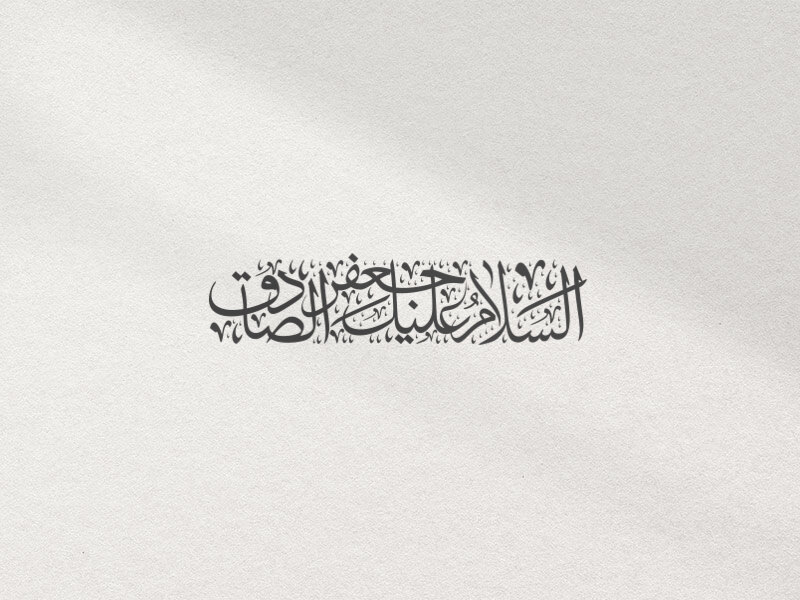 السلام عليك جعفر الصادق